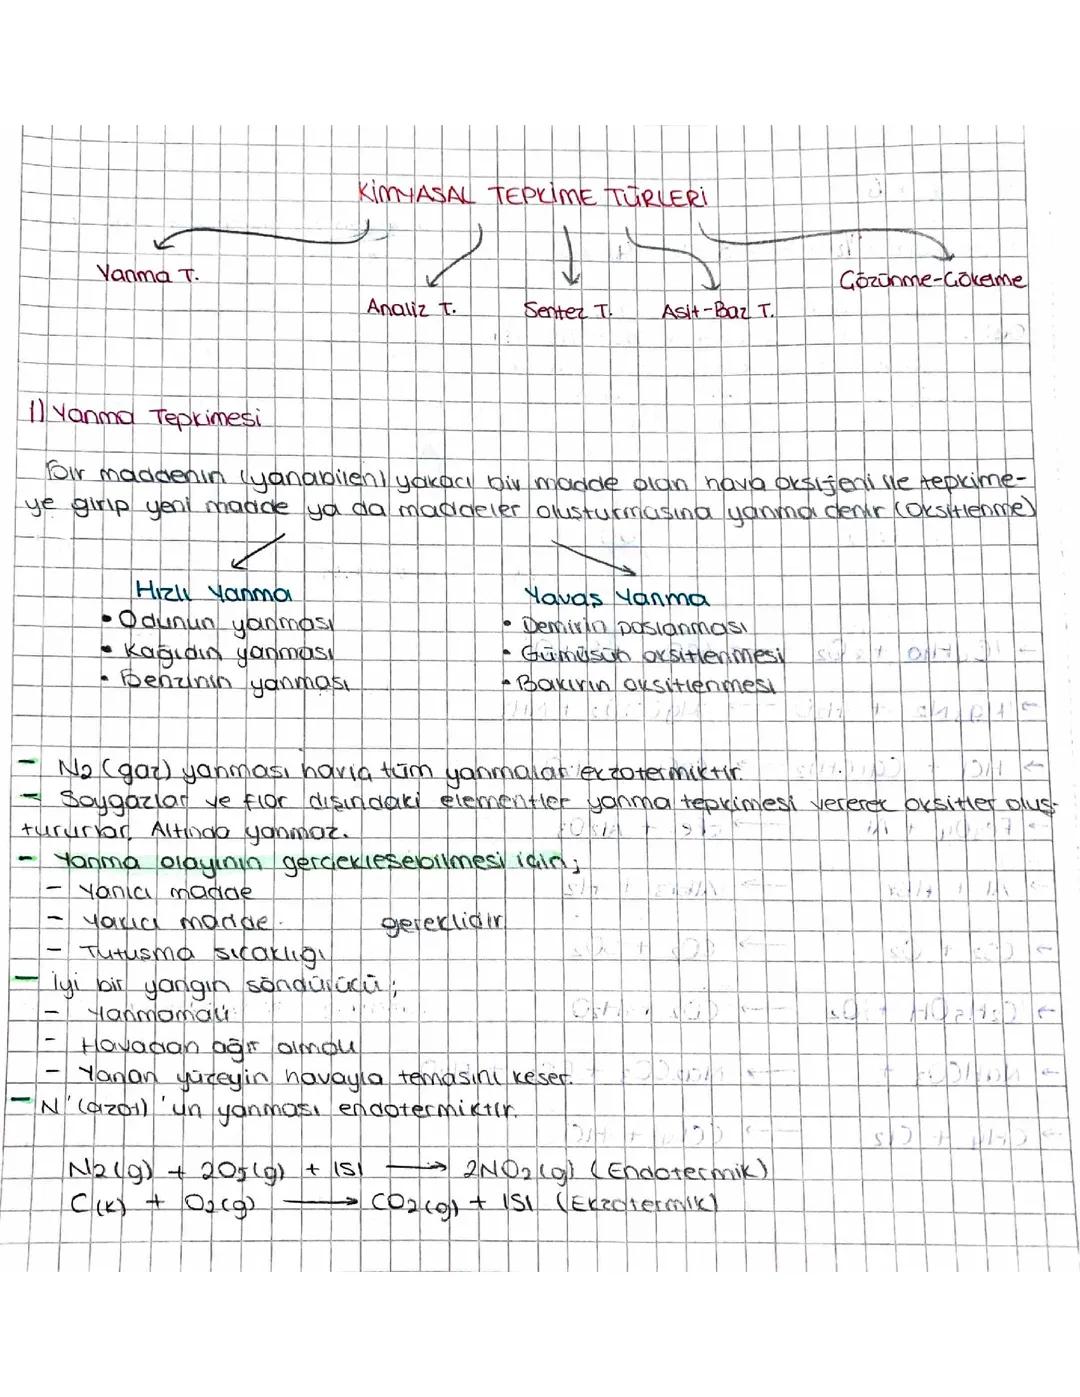 KİMYASAL TEPKİME TÜRLERİ
Yanma T.
Analiz T.
Sentez T.
Asit-Baz T.
Çözünme-Çökelme
1) Yanma Tepkimesi
Bir maddenin (yanabilen) yakıcı bir madde olan hava oksijeni ile tepkime-
ye girip yeni madde ya da maddeler oluşturmasına yanma denir (Oksitlenme)
Hızlı Yanma
• Odunun yanması
• Kağıdın yanması
• Benzinin yanması
Yavaş Yanma
• Demirin paslanması
• Gümüşün oksitlenmesi
• Bakırın oksitlenmesi
- N2 (gaz) yanması hariç tüm yanmalar ekzotermiktir.
- Soygazlar ve flor dışındaki elementler yanma tepkimesi vererek oksitler oluş-
tururlar. Altında yanmaz.
- Yanma olayının gerçekleşebilmesi için;
- Yanıcı madde
- Yakıcı madde gereklidir
- Tutuşma sıcaklığı
- İyi bir yangın söndürücü;
- Yanmamalı
- Havadan ağır olmalı
- Yanan yüzeyin havayla temasını keser.
- N' (azot) 'un yanması endotermiktir.
N2(g) + 2O2(g) + ISI → 2NO2(g) (Endotermik)
C(k) + O2(g) → CO2(g) + ISI (Ekzotermik)